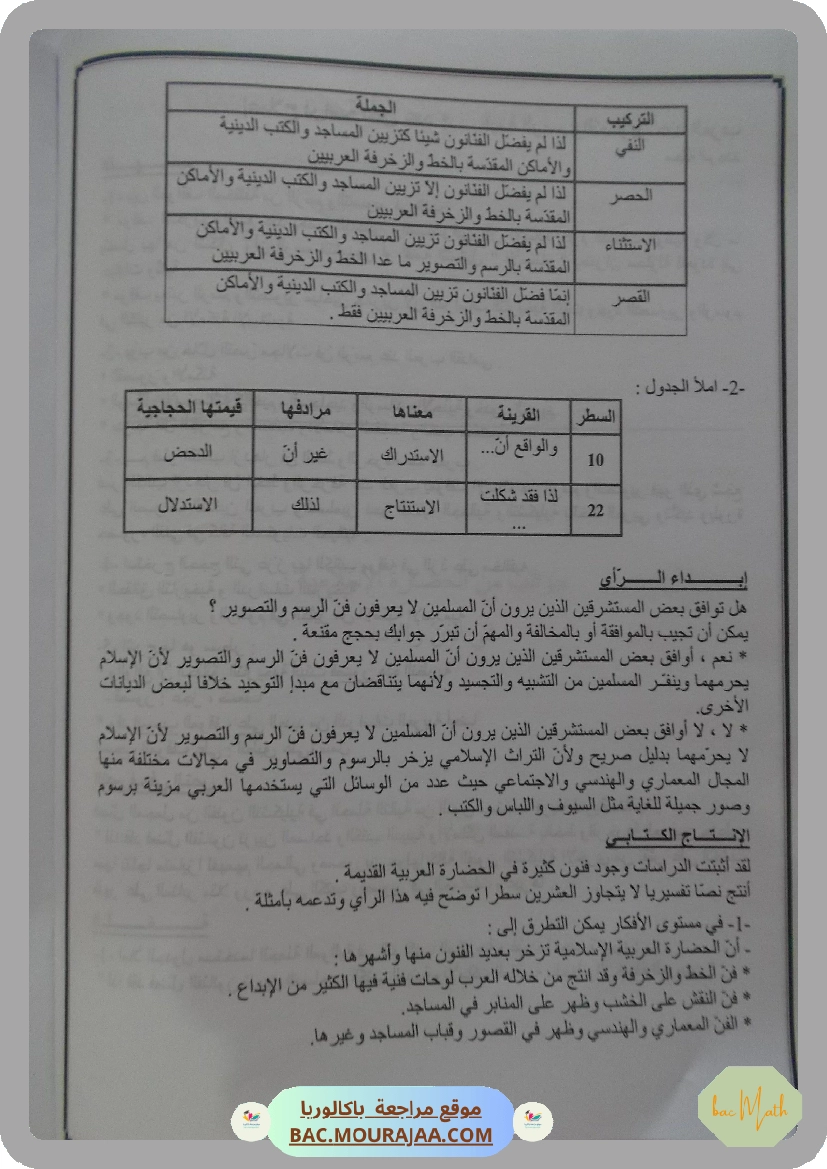 التركيب الجملة
النفي لذا لم يفضّل الفنّانون شيئا كتزيين المساجد والكتب الدينية
والأماكن المقدّسة بالخطّ والزخرفة العربيين
الحصر لذا لم يفضّل الفنّانون إلا تزيين المساجد والكتب الدينية والأماكن
المقدّسة بالخطّ والزخرفة العربيين
الاستثناء لذا لم يفضّل الفنّانون تزيين المساجد والكتب الدينية والأماكن
المقدّسة بالرسم والتصوير ما عدا الخطّ والزخرفة العربيين
القصر إنمّا فضّل الفنّانون تزيين المساجد والكتب الدينية والأماكن
المقدّسة بالخطّ والزخرفة العربيين فقط .
-2- املأ الجدول :
السطر القرينة معناها مرادفها قيمتها الحجاجية
10 والواقع أنّ... الاستدراك غير أنّ الدحض
22 لذا فقد شكلت ... الاستنتاج لذلك الاستدلال
إبـــداء الـــرّأي
هل توافق بعض المستشرقين الذين يرون أنّ المسلمين لا يعرفون فنّ الرسم والتصوير ؟
يمكن أن تجيب بالموافقة أو بالمخالفة والمهمّ أن تبرّر جوابك بحجج مقنعة .
* نعم ، أوافق بعض المستشرقين الذين يرون أنّ المسلمين لا يعرفون فنّ الرسم والتصوير لأنّ الإسلام
يحرمهما وينفـّر المسلمين من التشبيه والتجسيد ولأنهما يتناقضان مع مبدإ التوحيد خلافا لبعض الديانات
الأخرى.
* لا ، لا أوافق بعض المستشرقين الذين يرون أنّ المسلمين لا يعرفون فنّ الرسم والتصوير لأنّ الإسلام
لا يحرّمهما بدليل صريح ولأنّ التراث الإسلامي يزخر بالرسوم والتصاوير في مجالات مختلفة منها
المجال المعماري والهندسي والاجتماعي حيث عدد من الوسائل التي يستخدمها العربي مزينة برسوم
وصور جميلة للغاية مثل السيوف واللباس والكتب .
الإنـتـاج الكـتـابـي
لقد أثبتت الدراسات وجود فنون كثيرة في الحضارة العربية القديمة .
أنتج نصّا تفسيريا لا يتجاوز العشرين سطرا توضّح فيه هذا الرأي وتدعمه بأمثلة .
-1- في مستوى الأفكار يمكن التطرق إلى :
- أنّ الحضارة العربية الإسلامية تزخر بعديد الفنون منها وأشهرها :
* فنّ الخط والزخرفة وقد انتج من خلاله العرب لوحات فنية فيها الكثير من الإبداع .
* فنّ النقش على الخشب وظهر على المنابر في المساجد.
* الفنّ المعماري والهندسي وظهر في القصور وقباب المساجد وغيرها.
موقع مراجعة باكالوريا
BAC.MOURAJAA.COM
bac Math